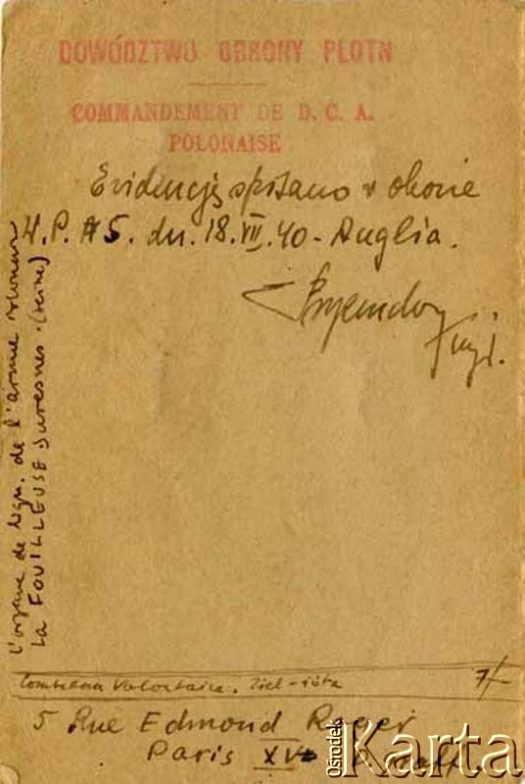 DOWÓDZTWO OBRONY PLOTN
COMMANDEMENT DE D. C. A.
POLONAISE
Evidencję spisano w obozie
W.P. #5. dn. 18.VII.40 - Anglia.
mjr.
l'organe de liqu. de l'armée
La FOUILLEUSE Suresnes. (Seine)
Volontaire.
7/-
5 Rue Edmond Roger
Paris XVe
Ośrodek
Karta